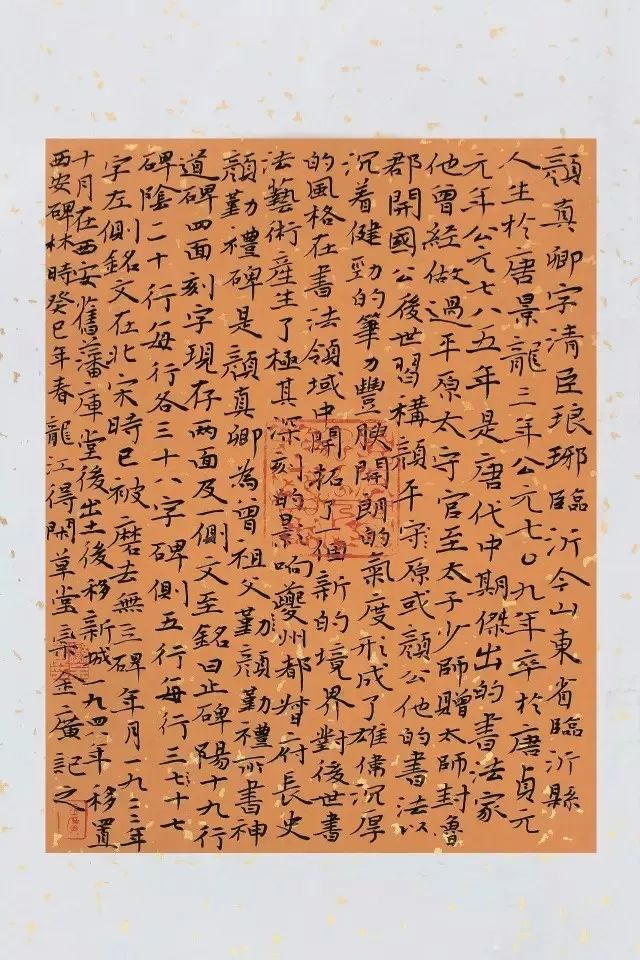 顔真卿字清臣琅琊臨沂今山東省臨沂縣
人生於唐景龍三年公元七〇九年卒於唐貞元
元年公元七八五年是唐代中期傑出的書法家
他曾經做過平原太守官至太子少師贈太師封魯
郡開國公後世習構顔平守原或顔公他的書法以
沉着健勁的筆力豐腴開朗的氣度形成了雄偉沉厚
的風格在書法領域中開拓了一個新的境界對後世書
法藝術産生了極其深刻的影响夔州都督府長史
顔勤禮碑是顔真卿為曾祖父勤顔勤禮所書神
道碑四面刻字現存兩面及一側文至銘曰止碑陽十九行
碑陰二十行每行各三十八字碑側五行每行三七十七
字左側銘文在北宋時已被磨去無三碑年月一九二二年
十月在西安舊藩庫堂後出土後移新城一九四八年移置
西安碑林時癸巳年春龍江得閑草堂梁金廣記之